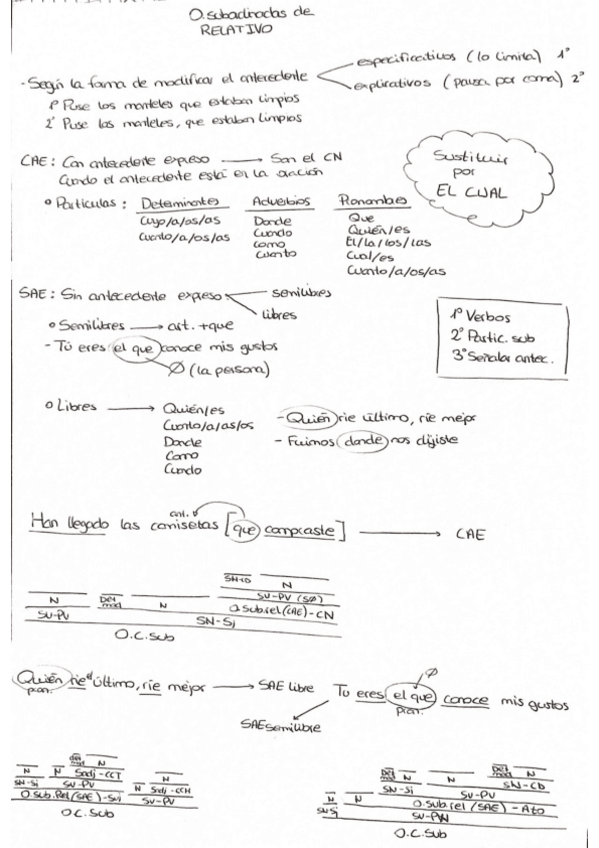 O.subordinadas de
RELATIVO
- Según la forma de modificar el antecedente
especificativos (lo limita) 1º
explicativos (pausa por coma) 2º
1º Puse los manteles que estaban limpios
2º Puse los manteles, que estaban limpios
CAE: Con antecedente expreso → Son el CN
Cuando el antecedente está en la oración
Sustituir
por
EL CUAL
° Partículas : Determinantes Adverbios Pronombres
Cuyo/a/os/as Donde Que
Cuanto/a/os/as Cuando Quién/es
Como El/la/los/las
Cuanto Cual/es
Cuanto/a/os/as
SAE: Sin antecedente expreso
semilibres
libres
1º Verbos
2º Partíc. sub
3º Señalar antec.
° Semilibres → art. + que
- Tú eres el que conoce mis gustos
Ø (la persona)
° Libres → Quién/es
Cuanto/a/as/os
Donde
Como
Cuando
- Quién rie último, ríe mejor
- Fuimos donde nos dijiste
ant.
Han llegado las camisetas [que compraste] → CAE
SN-CD N
N Det mod N SV-PV (SØ)
SV-PV O.Sub.rel(CAE)-CN
SN-Sj
O.C.Sub
Quién rie último, ríe mejor → SAE libre
pron.
Ø
Tu eres el que conoce mis gustos
pron.
SAE semilibre
N N Sadj-CCT
SN-Sj SV-PV N Sadj-CCM
O.Sub.Rel(SAE)-Suj SV-PV
O.C.Sub
Det N N Det N
SN-Sj SN-CD
SV-PV
N N O.Sub.rel (SAE) - Ato
SNSj SV-PN
O.C.Sub